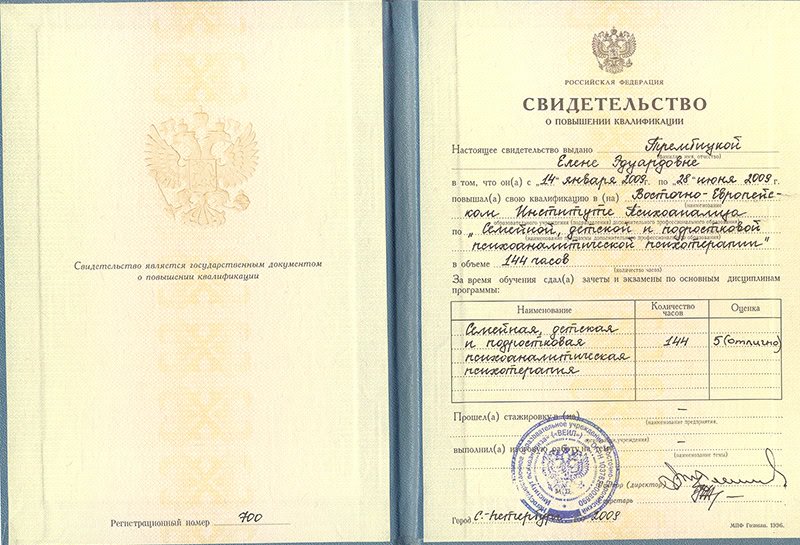 Свидетельство является государственным документом
о повышении квалификации
Регистрационный номер 700
РОССИЙСКАЯ ФЕДЕРАЦИЯ
СВИДЕТЕЛЬСТВО
О ПОВЫШЕНИИ КВАЛИФИКАЦИИ
Настоящее свидетельство выдано Трембицкой
(фамилия, имя, отчество)
Елене Эдуардовне
в том, что он(а) с „14“ января 2009 г. по „28“ июня 2009 г.
повышал(а) свою квалификацию в (на) Восточно-Европейс-
(наименование
ком Институте Психоанализа
образовательного учреждения (подразделения) дополнительного профессионального образования)
по „Семейной, детской и подростковой
(наименование программы дополнительного профессионального образования)
психоаналитической психотерапии"
в объеме 144 часов
(количество часов)
За время обучения сдал(а) зачеты и экзамены по основным дисциплинам
программы:
Наименование Количество часов Оценка
Семейная, детская
и подростковая 144 5 (отлично)
психоаналитическая
психотерапия
Прошел(а) стажировку в (на) –
(наименование предприятия,
организации, учреждения)
выполнил(а) итоговую работу на тему –
(наименование темы)
Ректор (директор)
Секретарь
Город С.-Петербург 2009
МПФ Гознак. 1996.